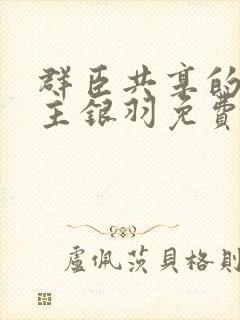 群臣共享的
主銀羽免費
盧佩茨貝格則